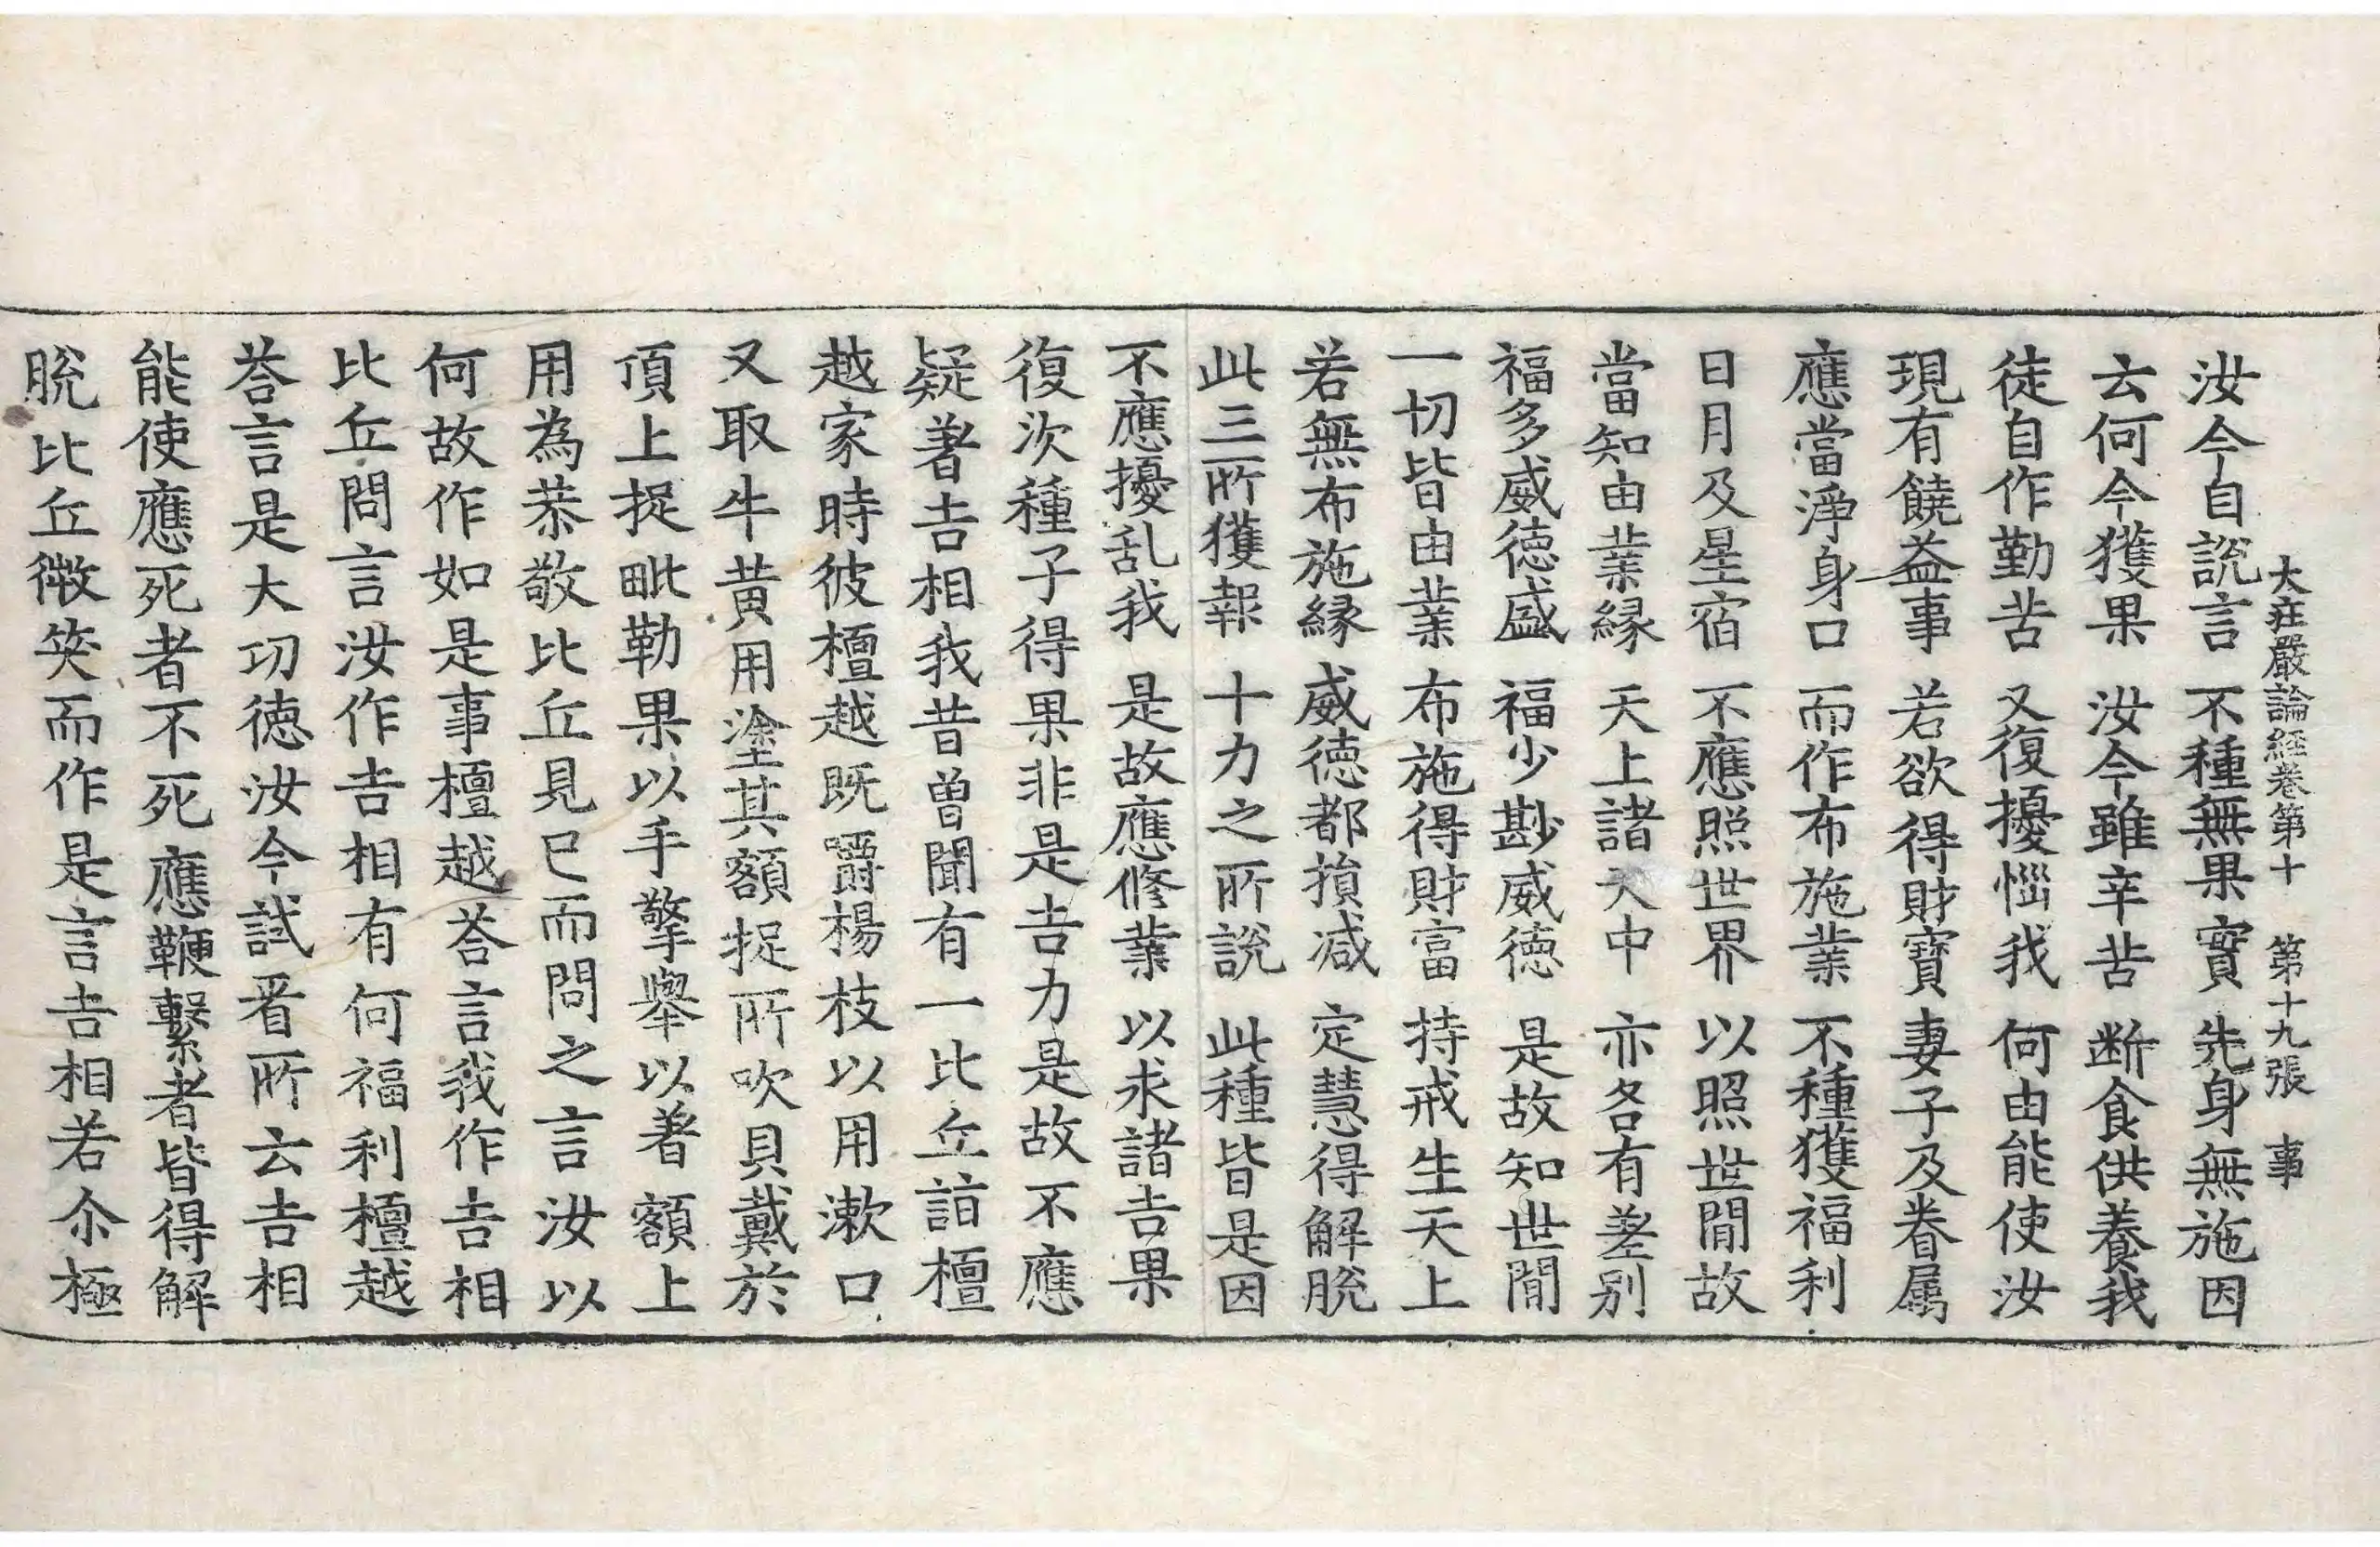 大莊嚴論経卷第十 第十九張 事
汝今自說言 不種無果實 先身無施因
云何今獲果 汝今雖辛苦 断食供養我
徒自作勤苦 又復擾惱我 何由能使汝
現有饒益事 若欲得財寶 妻子及眷属
應當淨身口 而作布施業 不種獲福利
日月及星宿 不應照世界 以照世間故
當知由業縁 天上諸天中 亦各有差別
福多威德盛 福少尠威德 是故知世間
一切皆由業 布施得財富 持戒生天上
若無布施縁 威德都損减 定慧得解脫
此三所獲報 十力之所說 此種皆是因
不應擾乱我 是故應修業 以求諸吉果
復次種子得果非是吉力是故不應
疑著吉相我昔曾聞有一比丘詣檀
越家時彼檀越既嚼楊枝以用漱口
又取牛黄用塗其額捉所吹貝戴於
頂上捉毗勒果以手擎舉以著額上
用為恭敬比丘見已而問之言汝以
何故作如是事檀越荅言我作吉相
比丘問言汝作吉相有何福利檀越
荅言是大功德汝今試看所云吉相
能使應死者不死應鞭繫者皆得解
脫比丘微笑而作是言吉相若尒極